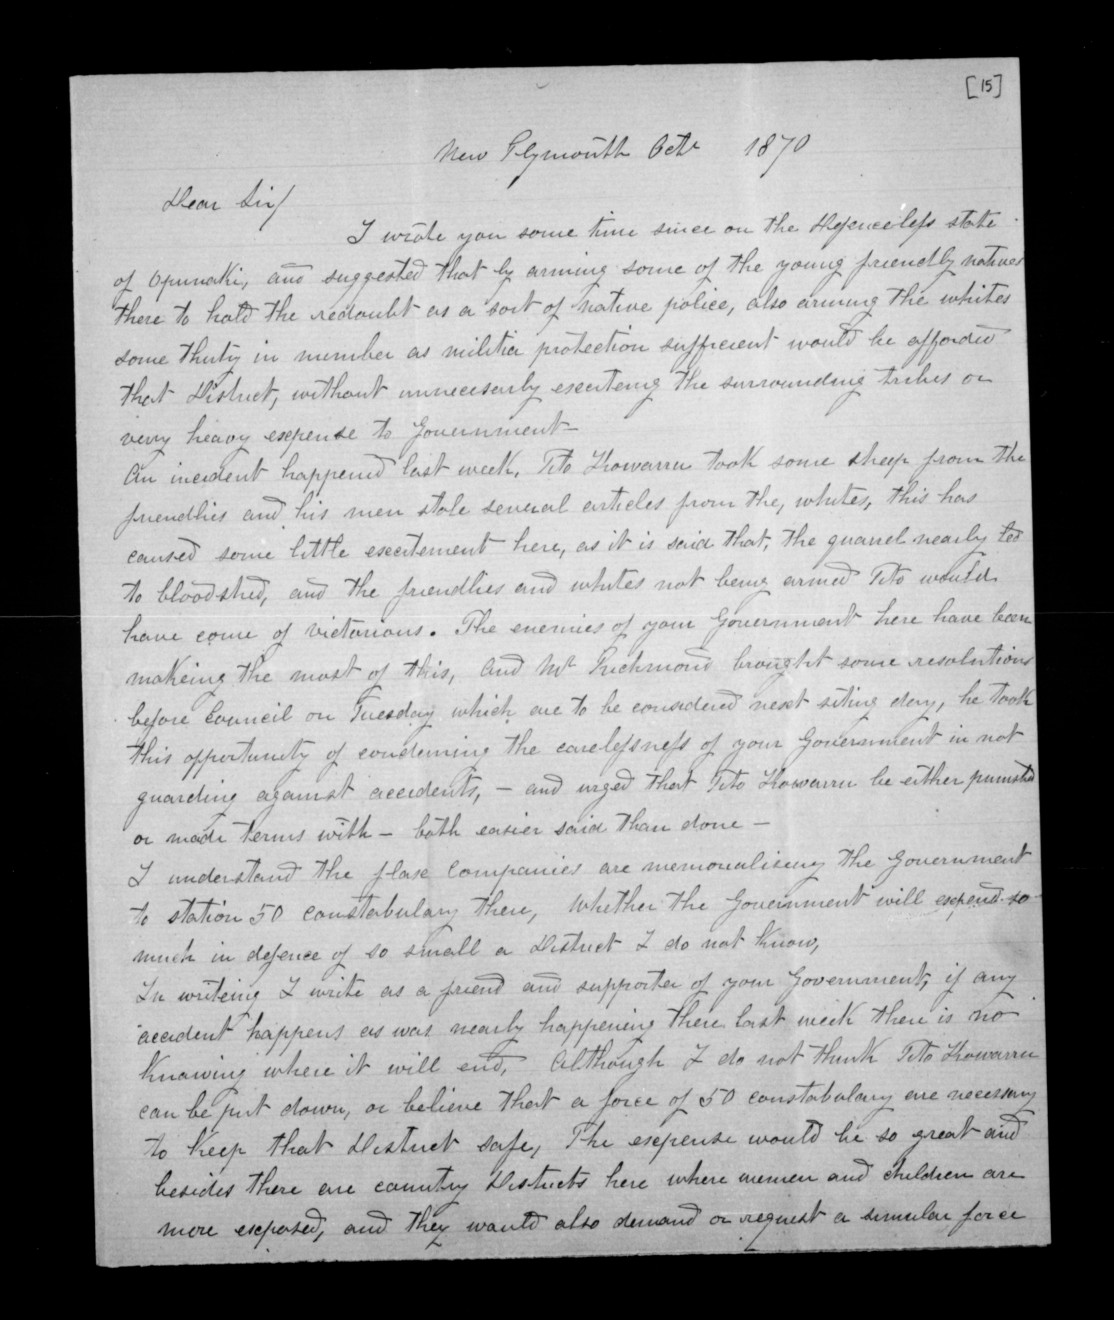 [15]
New Plymouth Octr 1870
Dear Sir/
I wrote you some time since on the Defenceless state
of Opunaki, and suggested that by arming some of the young friendly natives
there to hold the redoubt as a sort of native police, also arming the whites
some thirty in number as militia protection sufficient would be afforded
that District, without unnecesarly exciteing the surrounding tribes or
very heavy expense to Government—
An incident happened last week, Tito Howarru took some sheep from the
friendlies and his men stole several articles from the, whites, this has
caused some little excitement here, as it is said that, the quarrel nearly led
to bloodshed, and the friendlies and whites not being armed Tito would
have come of victorious. The enemies of your Government here have been
makeing the most of this, and Mr Richmond brought some resolutions
before Council on Tuesday which are to be considered next siting day, he took
this opportunity of condemning the carelessness of your Government in not
guarding against accidents, — and urged that Tito Howarru be either punished
or made terms with — both easier said than done —
I understand the flax Companies are memorialiseing the Government
to station 50 constabulary there, Whether the Government will expend so
much in defence of so small a District I do not know,
In writeing I write as a friend and supporter of your Government, if any
accident happens as was nearly happening there last week there is no
knowing where it will end, Although I do not think Tito Howarru
can be put down, or believe that a force of 50 constabulary are necessary
to keep that District safe, The expense would be so great and
besides there are country Districts here where women and children are
more exposed, and they would also demand or request a simular force